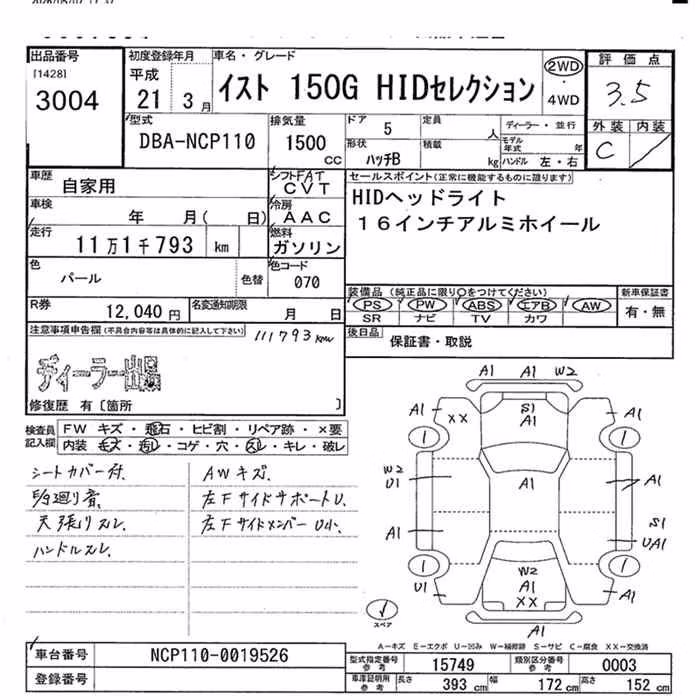 出品番号
[1428]
3004
初度登録年月
平成
21年 3月
車名・グレード
イスト 150G HIDセレクション
2WD
4WD
評価点
3.5
外装 内装
C
型式
DBA-NCP110
排気量
1500
CC
ドア 5
形状
ハッチB
定員 人
積載 kg
ディーラー・並行
モデル年式 年
ハンドル 左・右
車歴
自家用
シフト FAT
CVT
車検
年 月( 日)
冷房
AAC
走行
11万1千793 km
燃料
ガソリン
色
パール
色替
色コード
070
R券
12,040 円
名変通知期限
月 日
セールスポイント(正常に機能するものに限ります)
HIDヘッドライト
16インチアルミホイール
装備品 (純正品に限り○をつけてください)
PS PW ABS エアB AW
SR ナビ TV カワ
新車保証書
有・無
後日品
保証書・取説
注意事項申告欄(不具合内容等は具体的に記入して下さい)
111793km
ディーラー出品
修復歴 有〔箇所 〕
検査員記入欄
FW キズ・飛石・ヒビ割・リペア跡・×要
内装・キズ・汚レ・コゲ・穴・スレ・キレ・破レ
シートカバー付.
天張りスレ.
ハンドルスレ.
AWキズ.
左FサイドサポートU.
左FサイドメンバーU小.
A1 A1 W2
A1 XX S1 A1 A1
1 1
W2 U1 A1 A1
A1 S1 UA1
1 1
U1 W2 A1 XX A1
スペア
A1
A-キズ E-エクボ U-凹み W-補修跡 S-サビ C-腐食 XX-交換済
車台番号
NCP110-0019526
登録番号
型式指定番号 参考
15749
類別区分番号 参考
0003
車庫証明用 参考
長さ 393 cm 幅 172 cm 高さ 152 cm